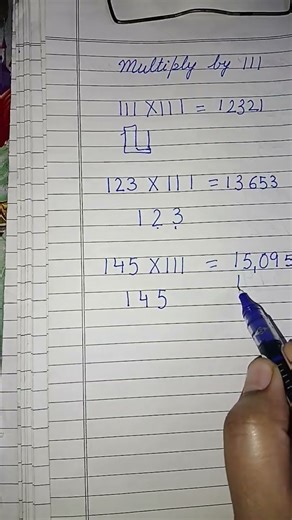 Multiply by 111
111 X 111 = 12321
123 X 111 = 13653
1 2 3
145 X 111 = 15,095
1 4 5